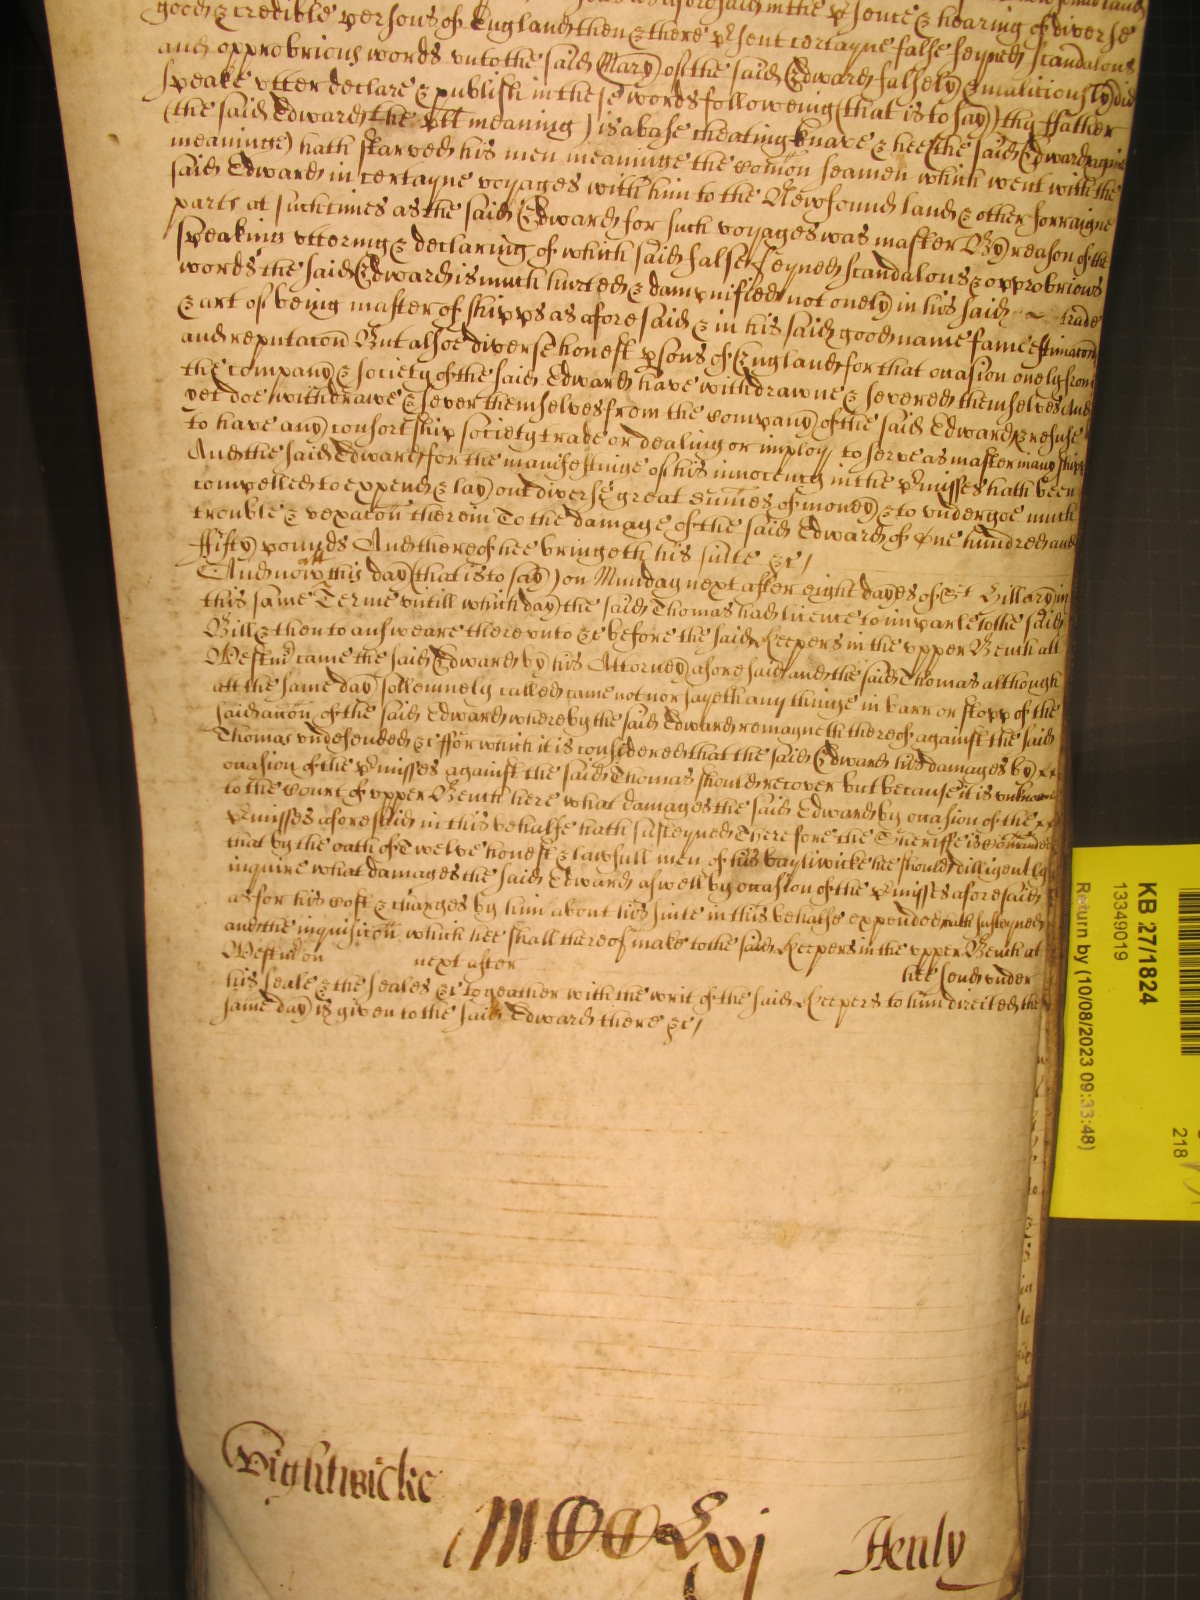 good & credible persons of England then & there psent certayne false feyned scandalous
and opprobrious words unto the said Mary of the said Edward falsely & malitiously did
speake utter declare & publish in these words followeing (that is to say) thy ffather
(the said Edward the pltt meaning) is a base cheating knave & hee (the said Edward againe
meaninge) hath starved his men meaninge the comon seamen which went with the
said Edward in certayne voyages with him to the Newfound land & other forraigne
parts at such times as the said Edward for such voyages was master By reason of the
speaking uttering & declaring of which said false feyned scandalous & opprobrious
words the said Edward is much hurted & dampnified not onely in his said trade
& art of being master of shipps as aforesaid & in his said good name fame estimacon
and reputacon But alsoe diverse honest psons of England for that occasion onely from
the company & society of the said Edward have withdrawne & severed themselves And
yet doe withdrawe & sever themselves from the company of the said Edward & refuse
to have any consortship society trade or dealing or imploy to serve as master in any shipp
And the said Edward for the manifestinge of his innocency in the pmisses hath been
compelled to expend & lay out diverse great sumes of money & to undergoe much
trouble & vexacon therein To the damage of the said Edward of One hundred and
ffifty pounds And thereof hee bringeth his suite &c/
And now this day (that is to say) on Munday next after eight dayes of St Hillary in
this same Terme untill which day the said Thomas had licence to imparle to the said
Bill & then to answeare thereunto &c before the said Keepers in the upper Bench att
Westm came the said Edward by his Attorney aforesaid and the said Thomas although
att the same day sollemnely called came not nor sayeth any thinge in barr or stopp of the
said accon of the said Edward whereby the said Edward remayneth thereof against the said
Thomas undefended &c ffor which it is considered that the said Edward his damages by
occasion of the pmisses against the said Thomas should recover but because it is unknowne
to the Court of upper Bench here what damages the said Edward by occasion of the
pmisses aforesaid in this behalfe hath susteyned Therefore the Sheriffe is comanded
that by the oath of Twelve honest & lawfull men of his bayliwicke hee should dilligently
inquire what damages the said Edward aswell by occasion of the pmisses aforesaid
as for his cost & charges by him about his suite in this behalfe expended hath susteyned
and the inquisicon which hee shall thereof make to the said Keepers in the upper Bench at
Westm on next after hee send under
his seale & the seales &c togeather with the writ of the said Keepers to him directed the
same day is given to the said Edward there &c/
Wightwicke
Henly
KB 27/1824
13349019
Return by (10/08/2023 09:33:48)
218